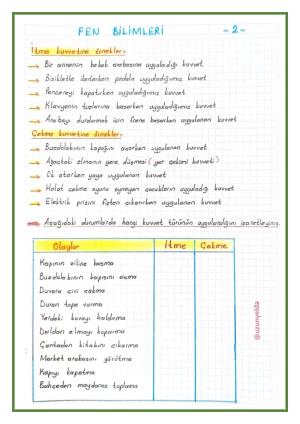 FEN BİLİMLERİ -2-
İtme kuvvetine örnekler;
→ Bir annenin bebek arabasına uyguladığı kuvvet
→ Bisikletle ilerlerken pedala uyguladığımız kuvvet
→ Pencereyi kapatırken uyguladığımız kuvvet
→ Klavyenin tuşlarına basarken uyguladığımız kuvvet
→ Arabayı durdurmak için frene basarken uygulanan kuvvet
Çekme kuvvetine örnekler;
→ Buzdolabının kapağını açarken uygulanan kuvvet
→ Ağaçtaki elmanın yere düşmesi (yer çekimi kuvveti)
→ Ok atarken yaya uygulanan kuvvet
→ Halat çekme oyunu oynayan çocukların uyguladığı kuvvet
→ Elektrik prizini fişten çıkarırken uygulanan kuvvet
→ Aşağıdaki durumlarda hangi kuvvet türünün uygulandığını işaretleyiniz.
Olaylar İtme Çekme
Kapının ziline basma
Buzdolabının kapısını açma
Duvara çivi çakma
Duran topa vurma
Yerdeki kovayı kaldırma
Daldan elmayı koparma
Çantadan kitabını çıkarma
Market arabasını yürütme
Kapıyı kapatma
Bahçeden maydanoz toplama
@uzunyelda